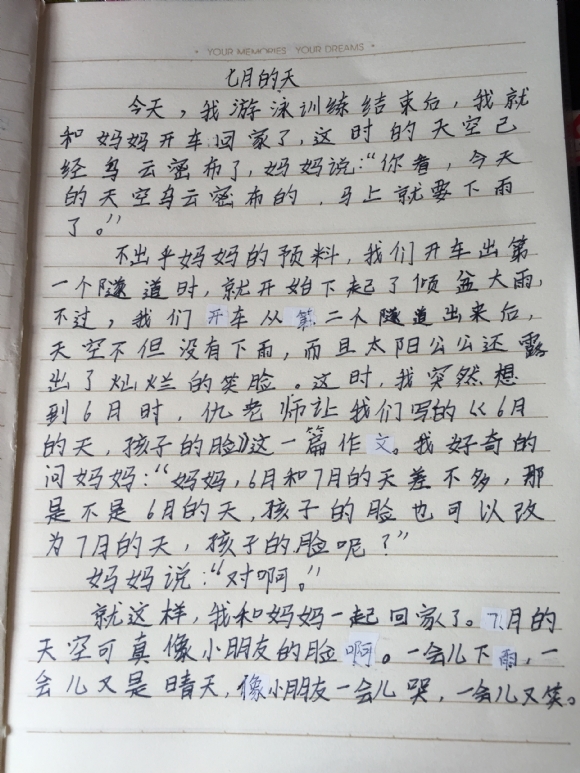 YOUR MEMORIES YOUR DREAMS
七月的天
今天，我游泳训练结束后，我就
和妈妈开车回家了，这时的天空已
经乌云密布了，妈妈说：“你看，今天
的天空乌云密布的，马上就要下雨
了。”
不出乎妈妈的预料，我们开车出第
一个隧道时，就开始下起了倾盆大雨，
不过，我们开车从第二个隧道出来后，
天空不但没有下雨，而且太阳公公还露
出了灿烂的笑脸。这时，我突然想
到6月时，仇老师让我们写的《6月
的天，孩子的脸》这一篇作文。我好奇的
问妈妈：“妈妈，6月和7月的天差不多，那
是不是6月的天，孩子的脸也可以改
为7月的天，孩子的脸呢？”
妈妈说：“对啊。”
就这样，我和妈妈一起回家了。7月的
天空可真像小朋友的脸啊。一会儿下雨，一
会儿又是晴天，像小朋友一会儿哭，一会儿又笑。